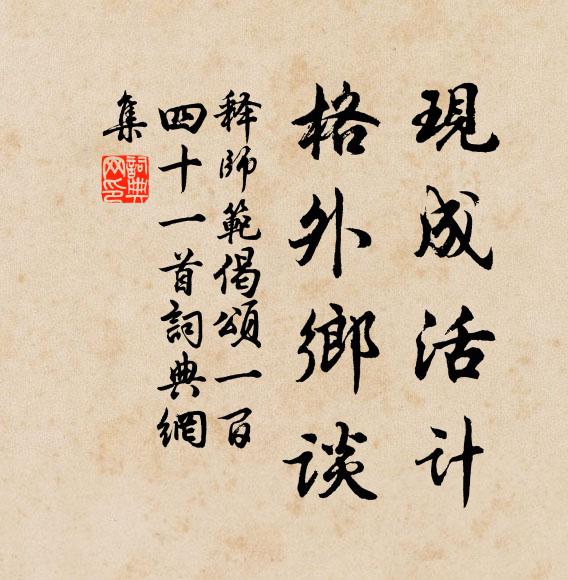 現成活計
格外鄉談
释師範偈頌一百
四十一首詞典網
集
詞典
网印